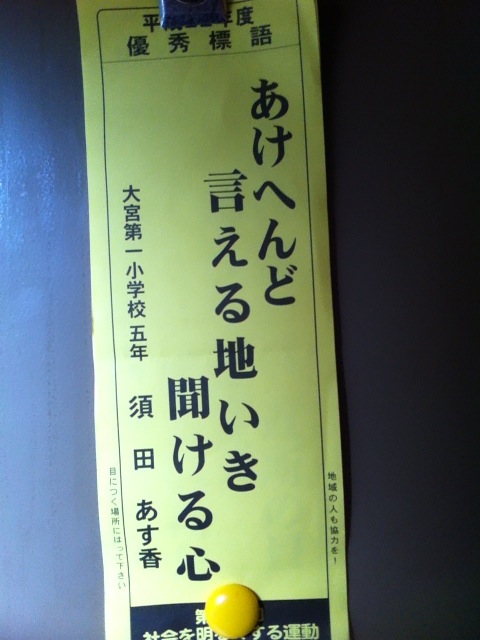 平成 年度
優秀標語
地域の人も協力を！
あけへんど
言える地いき
聞ける心
大宮第一小学校 五年 須田 あす香
目につく場所にはって下さい
第
社会を明 する運動